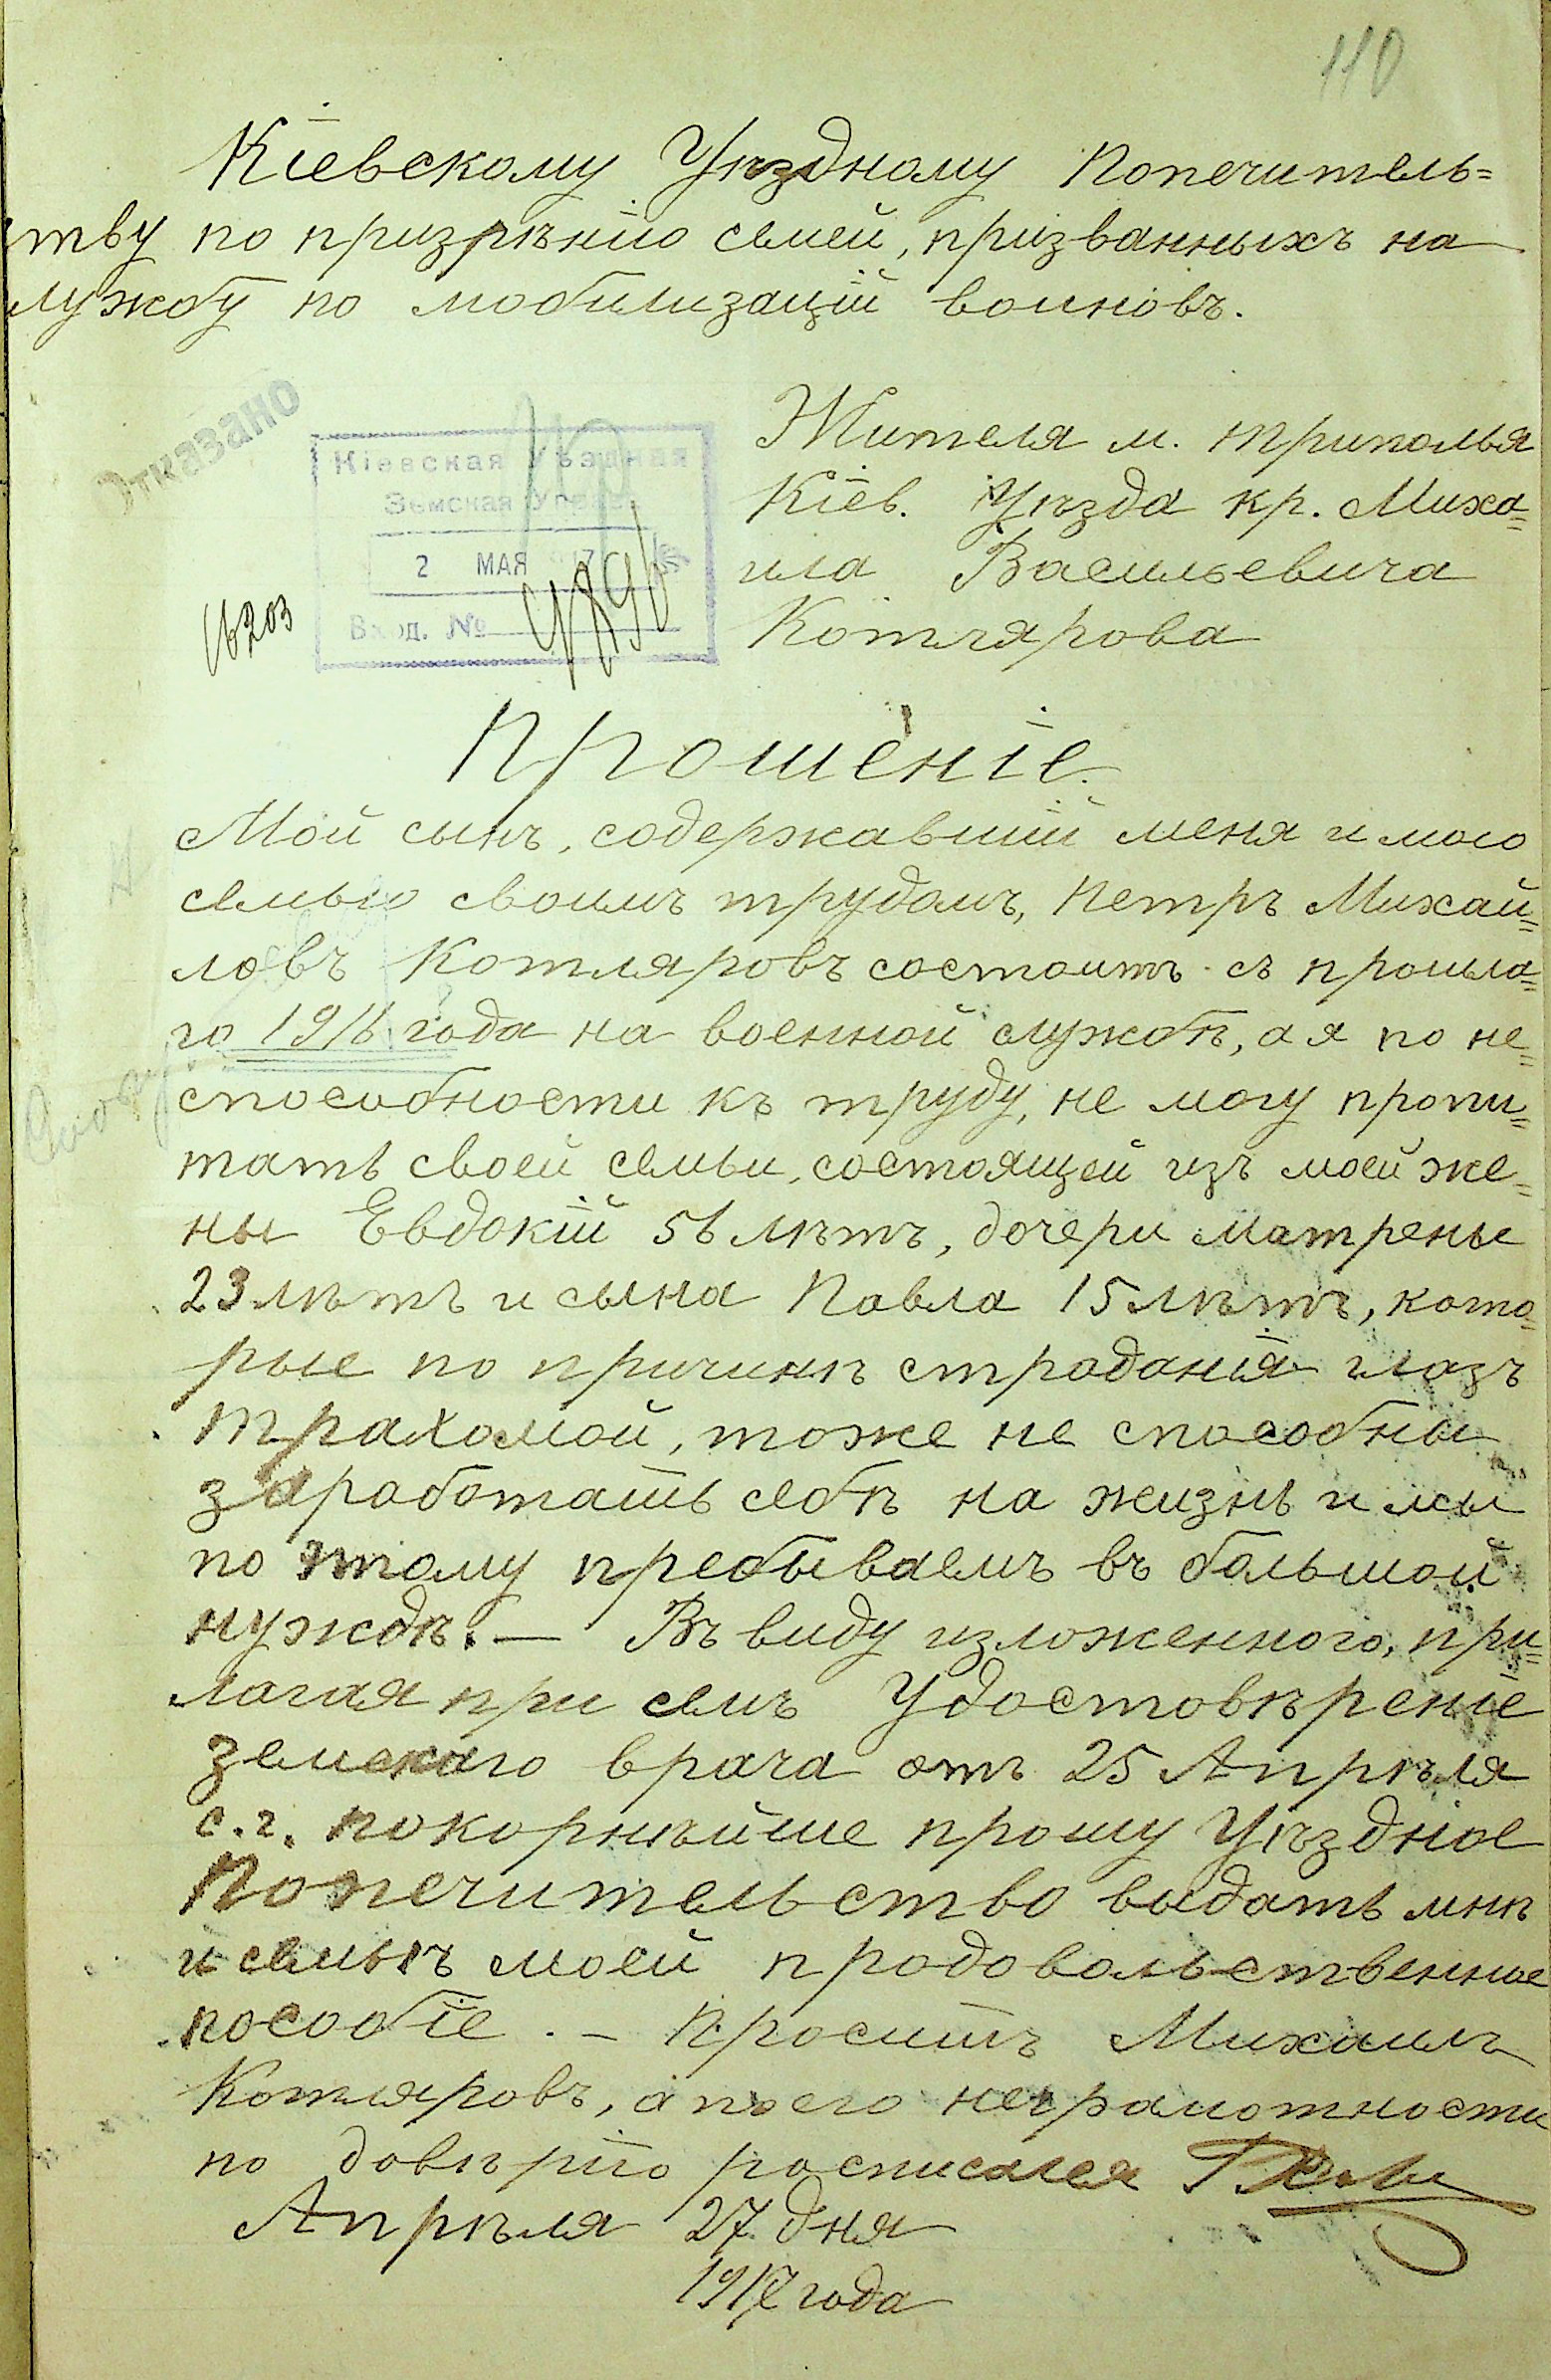 110
Кіевскому Уѣздному Попечитель=
ству по призрѣнію семей, призванныхъ на
службу по мобилизаціи воиновъ.
Отказано
Кіевская Уѣздная
Земская Управа
2 МАЯ 1917
Вход. №
16203
Жителя м. Триполья
Кіев. Уѣзда кр. Миха=
ила Васильевича
Котлярова
Прошеніе.
Мой сынъ, содержавшій меня и мою
семью своимъ трудомъ, Петръ Михай=
ловъ Котляровъ состоитъ съ прошла=
го 1916 года на военной службѣ, а я по не=
способности къ труду, не могу пропи=
тать своей семьи, состоящей изъ моей же=
ны Евдокіи 56 лѣтъ, дочери Матрены
23 лѣтъ и сына Павла 15 лѣтъ, кото=
рые по причинѣ страданія глазъ
трахомой, тоже не способны
заработать себѣ на жизнь и мы
по этому пребываемъ въ большой
нуждѣ. — Въ виду изложенного, при=
лагая при семъ Удостовѣреніе
земскаго врача отъ 25 Апрѣля
с.г. покорнѣйше прошу Уѣздное
Попечительство выдать мнѣ
и семьѣ моей продовольственное
пособіе. — Проситъ Михаилъ
Котляровъ, а по его неграмотности
по довѣрію росписался
Апрѣля 27 дня
1917 года